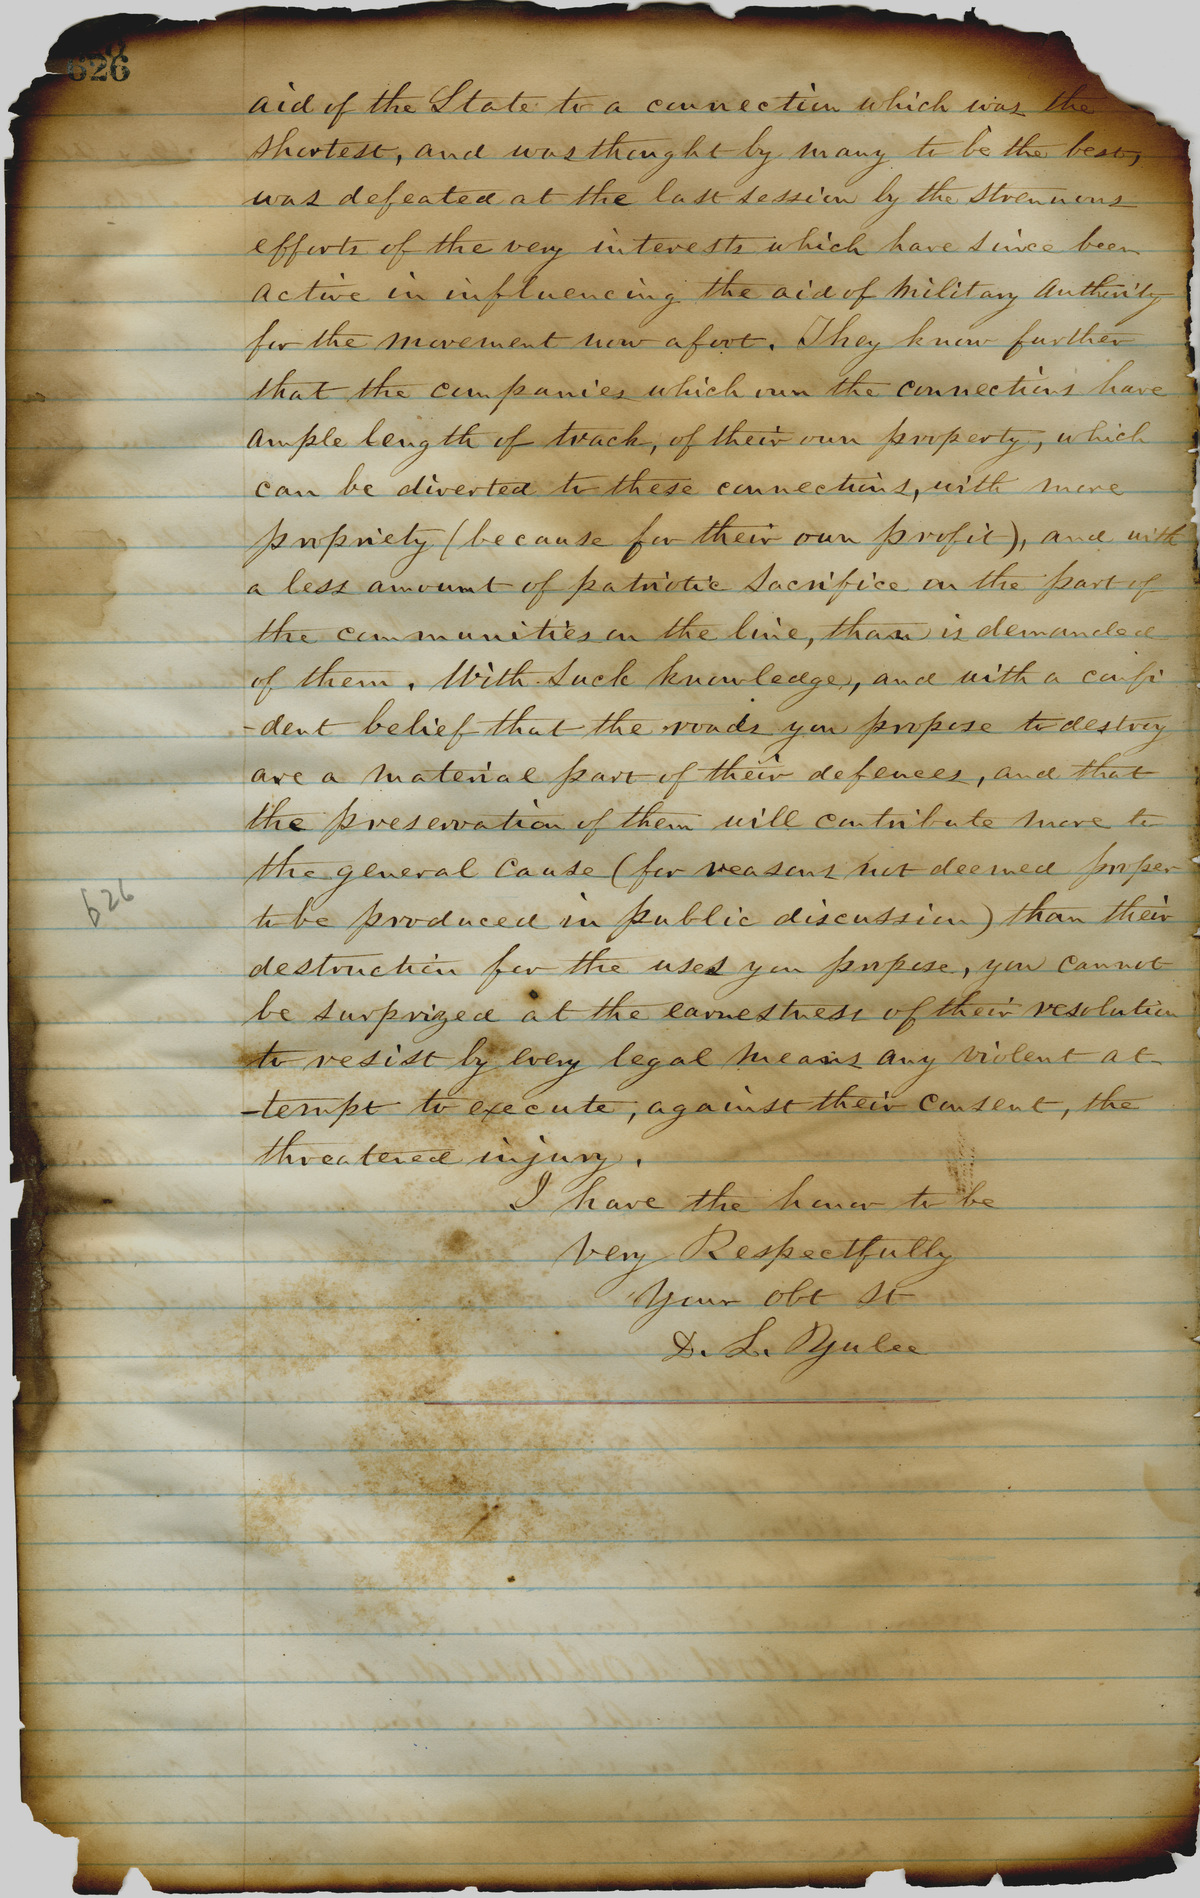 626
aid of the State to a connection which was the
shortest, and was thought by many to be the best,
was defeated at the last session by the strenuous
efforts of the very interests which have since been
active in influencing the aid of Military Authority
for the movement now afoot. They know further
that the companies which own the connections have
ample length of track, of their own property, which
can be diverted to these connections, with more
propriety (because for their own profit), and with
a less amount of patriotic sacrifice on the part of
the communities on the line, than is demanded
of them. With such knowledge, and with a confi
-dent belief that the roads you propose to destroy
are a material part of their defences, and that
the preservation of them will contribute more to
the general cause (for reasons not deemed proper
to be produced in public discussion) than their
destruction for the uses you propose, you cannot
be surprized at the earnestness of their resolution
to resist by every legal means any violent at
-tempt to execute, against their consent, the
threatened injury.
I have the honor to be
Very Respectfully
Your obt st
D. L. Yulee
626